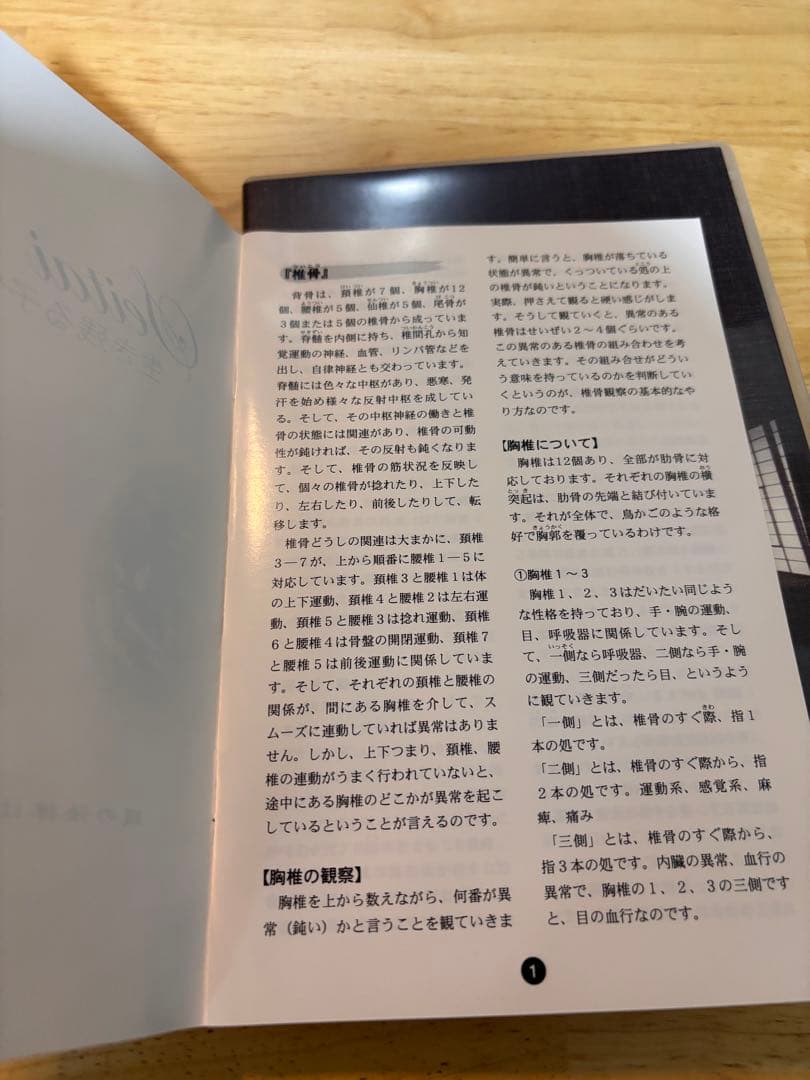 Seitai
『椎骨』
背骨は、頚椎が７個、胸椎が12
個、腰椎が５個、仙椎が５個、尾骨が
３個または５個の椎骨から成っていま
す。脊髄を内側に持ち、椎間孔から知
覚運動の神経、血管、リンパ管などを
出し、自律神経とも交わっています。
脊髄には色々な中枢があり、悪寒、発
汗を始め様々な反射中枢を成してい
る。そして、その中枢神経の働きと椎
骨の状態には関連があり、椎骨の可動
性が鈍ければ、その反射も鈍くなりま
す。そして、椎骨の筋状況を反映し
て、個々の椎骨が捻れたり、上下した
り、左右したり、前後したりして、転
移します。
椎骨どうしの関連は大まかに、頚椎
３―７が、上から順番に腰椎１―５に
対応しています。頚椎３と腰椎１は体
の上下運動、頚椎４と腰椎２は左右運
動、頚椎５と腰椎３は捻れ運動、頚椎
６と腰椎４は骨盤の開閉運動、頚椎７
と腰椎５は前後運動に関係していま
す。そして、それぞれの頚椎と腰椎の
関係が、間にある胸椎を介して、スム
ーズに連動していれば異常はありま
せん。しかし、上下つまり、頚椎、腰
椎の連動がうまく行われていないと、
途中にある胸椎のどこかが異常を起こ
しているということが言えるのです。
【胸椎の観察】
胸椎を上から数えながら、何番が異
常（鈍い）かと言うことを観ていきま
す。簡単に言うと、胸椎が落ちている
状態が異常で、くっついている処の上
の椎骨が鈍いということになります。
実際、押さえて観ると硬い感じがしま
す。そうして観ていくと、異常のある
椎骨はせいぜい２～４個ぐらいです。
この異常のある椎骨の組み合わせを考
えていきます。その組み合せがどうい
う意味を持っているのかを判断してい
くというのが、椎骨観察の基本的なや
り方なのです。
【胸椎について】
胸椎は12個あり、全部が肋骨に対
応しております。それぞれの胸椎の横
突起は、肋骨の先端と結び付いていま
す。それが全体で、鳥かごのような格
好で胸郭を覆っているわけです。
①胸椎１～３
胸椎１、２、３はだいたい同じよう
な性格を持っており、手・腕の運動、
目、呼吸器に関係しています。そし
て、一側なら呼吸器、二側なら手・腕
の運動、三側だったら目、というよう
に観ていきます。
「一側」とは、椎骨のすぐ際、指１
本の処です。
「二側」とは、椎骨のすぐ際から、指
２本の処です。運動系、感覚系、麻
痺、痛み
「三側」とは、椎骨のすぐ際から、
指３本の処です。内臓の異常、血行の
異常で、胸椎の１、２、３の三側です
と、目の血行なのです。
1